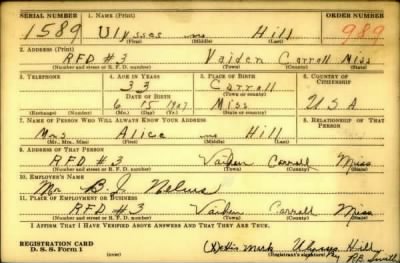 SERIAL NUMBER 1. NAME (Print) ORDER NUMBER
1589 Ulysses Hill 989
(First) (Middle) (Last)
2. ADDRESS (Print)
RFD #3 Vaiden Carroll Miss
(Number and street or R. F. D. number) (Town) (County) (State)
3. TELEPHONE 4. AGE IN YEARS 5. PLACE OF BIRTH 6. COUNTRY OF CITIZENSHIP
33 Carroll
DATE OF BIRTH (Town or county)
6 15 1907 Miss USA
(Exchange) (Number) (Mo.) (Day) (Yr.) (State or country)
7. NAME OF PERSON WHO WILL ALWAYS KNOW YOUR ADDRESS 8. RELATIONSHIP OF THAT PERSON
Mrs Alice Hill
(Mr., Mrs., Miss) (First) (Middle) (Last)
9. ADDRESS OF THAT PERSON
RFD #3 Vaiden Carroll Miss
(Number and street or R. F. D. number) (Town) (County) (State)
10. EMPLOYER'S NAME
Mr B. J.
11. PLACE OF EMPLOYMENT OR BUSINESS
RFD #3 Vaiden Carroll Miss
(Number and street or R. F. D. number) (Town) (County) (State)
I AFFIRM THAT I HAVE VERIFIED ABOVE ANSWERS AND THAT THEY ARE TRUE.
REGISTRATION CARD
D. S. S. Form 1 (X) His Mark Ulysses Hill
(over) (Registrant's signature) By R.B. Smith